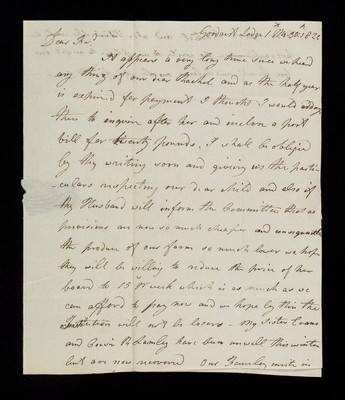 Dear Friend
It appears a very long time since we heard
any thing of our dear Rachel and as the half year
is expired for payment I thought I would
thee to inquire after her and inclose a post
bill for twenty pounds, I shall be obliged
by thy writing soon and giving us the parti-
-culars respecting our dear child and also if
thy Husband will inform the Committee that as
provisions are now so much cheaper and consequently
the produce of our farm so much lower we hope
they will be willing to reduce the price of her
board to 15 P week which is as much as we
can afford to pay now and we hope by this the
Institution will not be losers - My Sister Evans
and have been unwell this winter
but are now recovered Our Family unite in